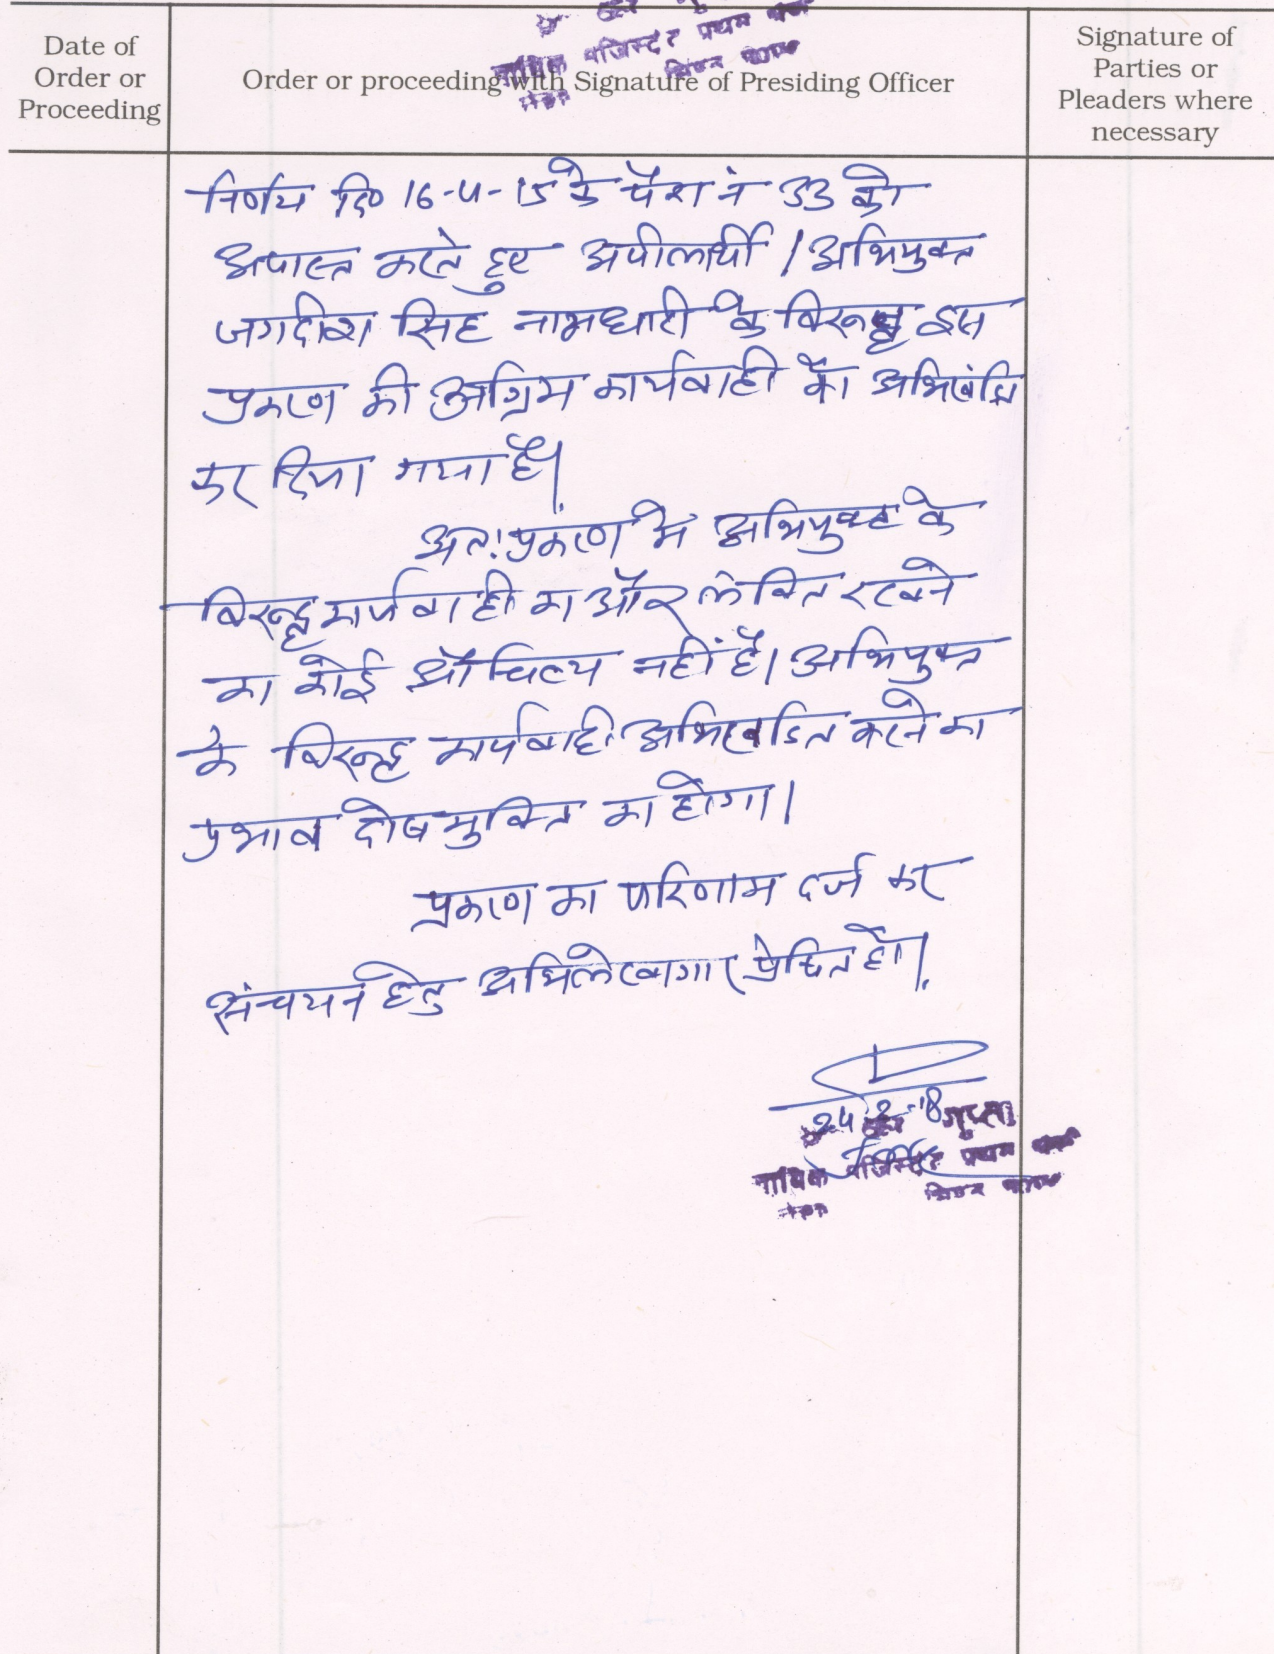 Date of
Order or
Proceeding
Order or proceeding with Signature of Presiding Officer
Signature of
Parties or
Pleaders where
necessary
न्यायिक मजिस्ट्रेट प्रथम श्रेणी
निर्णय दि० 16-4-15 के पैरा नं 33 को
अपास्त करते हुए अपीलार्थी / अभियुक्त
जगदीश सिंह नामधारी के विरूद्ध इस
प्रकरण की अग्रिम कार्यवाही को अभिखंडित
कर दिया गया है।
अतः प्रकरण में अभियुक्त के
विरूद्ध कार्यवाही का और लंबित रखने
का कोई औचित्य नहीं है। अभियुक्त
के विरूद्ध कार्यवाही अभिखंडित करने का
प्रभाव दोषमुक्ति का होगा।
प्रकरण का परिणाम दर्ज कर
संचयन हेतु अभिलेखागार प्रेषित हो।
गुप्ता
न्यायिक मजिस्ट्रेट प्रथम श्रेणी